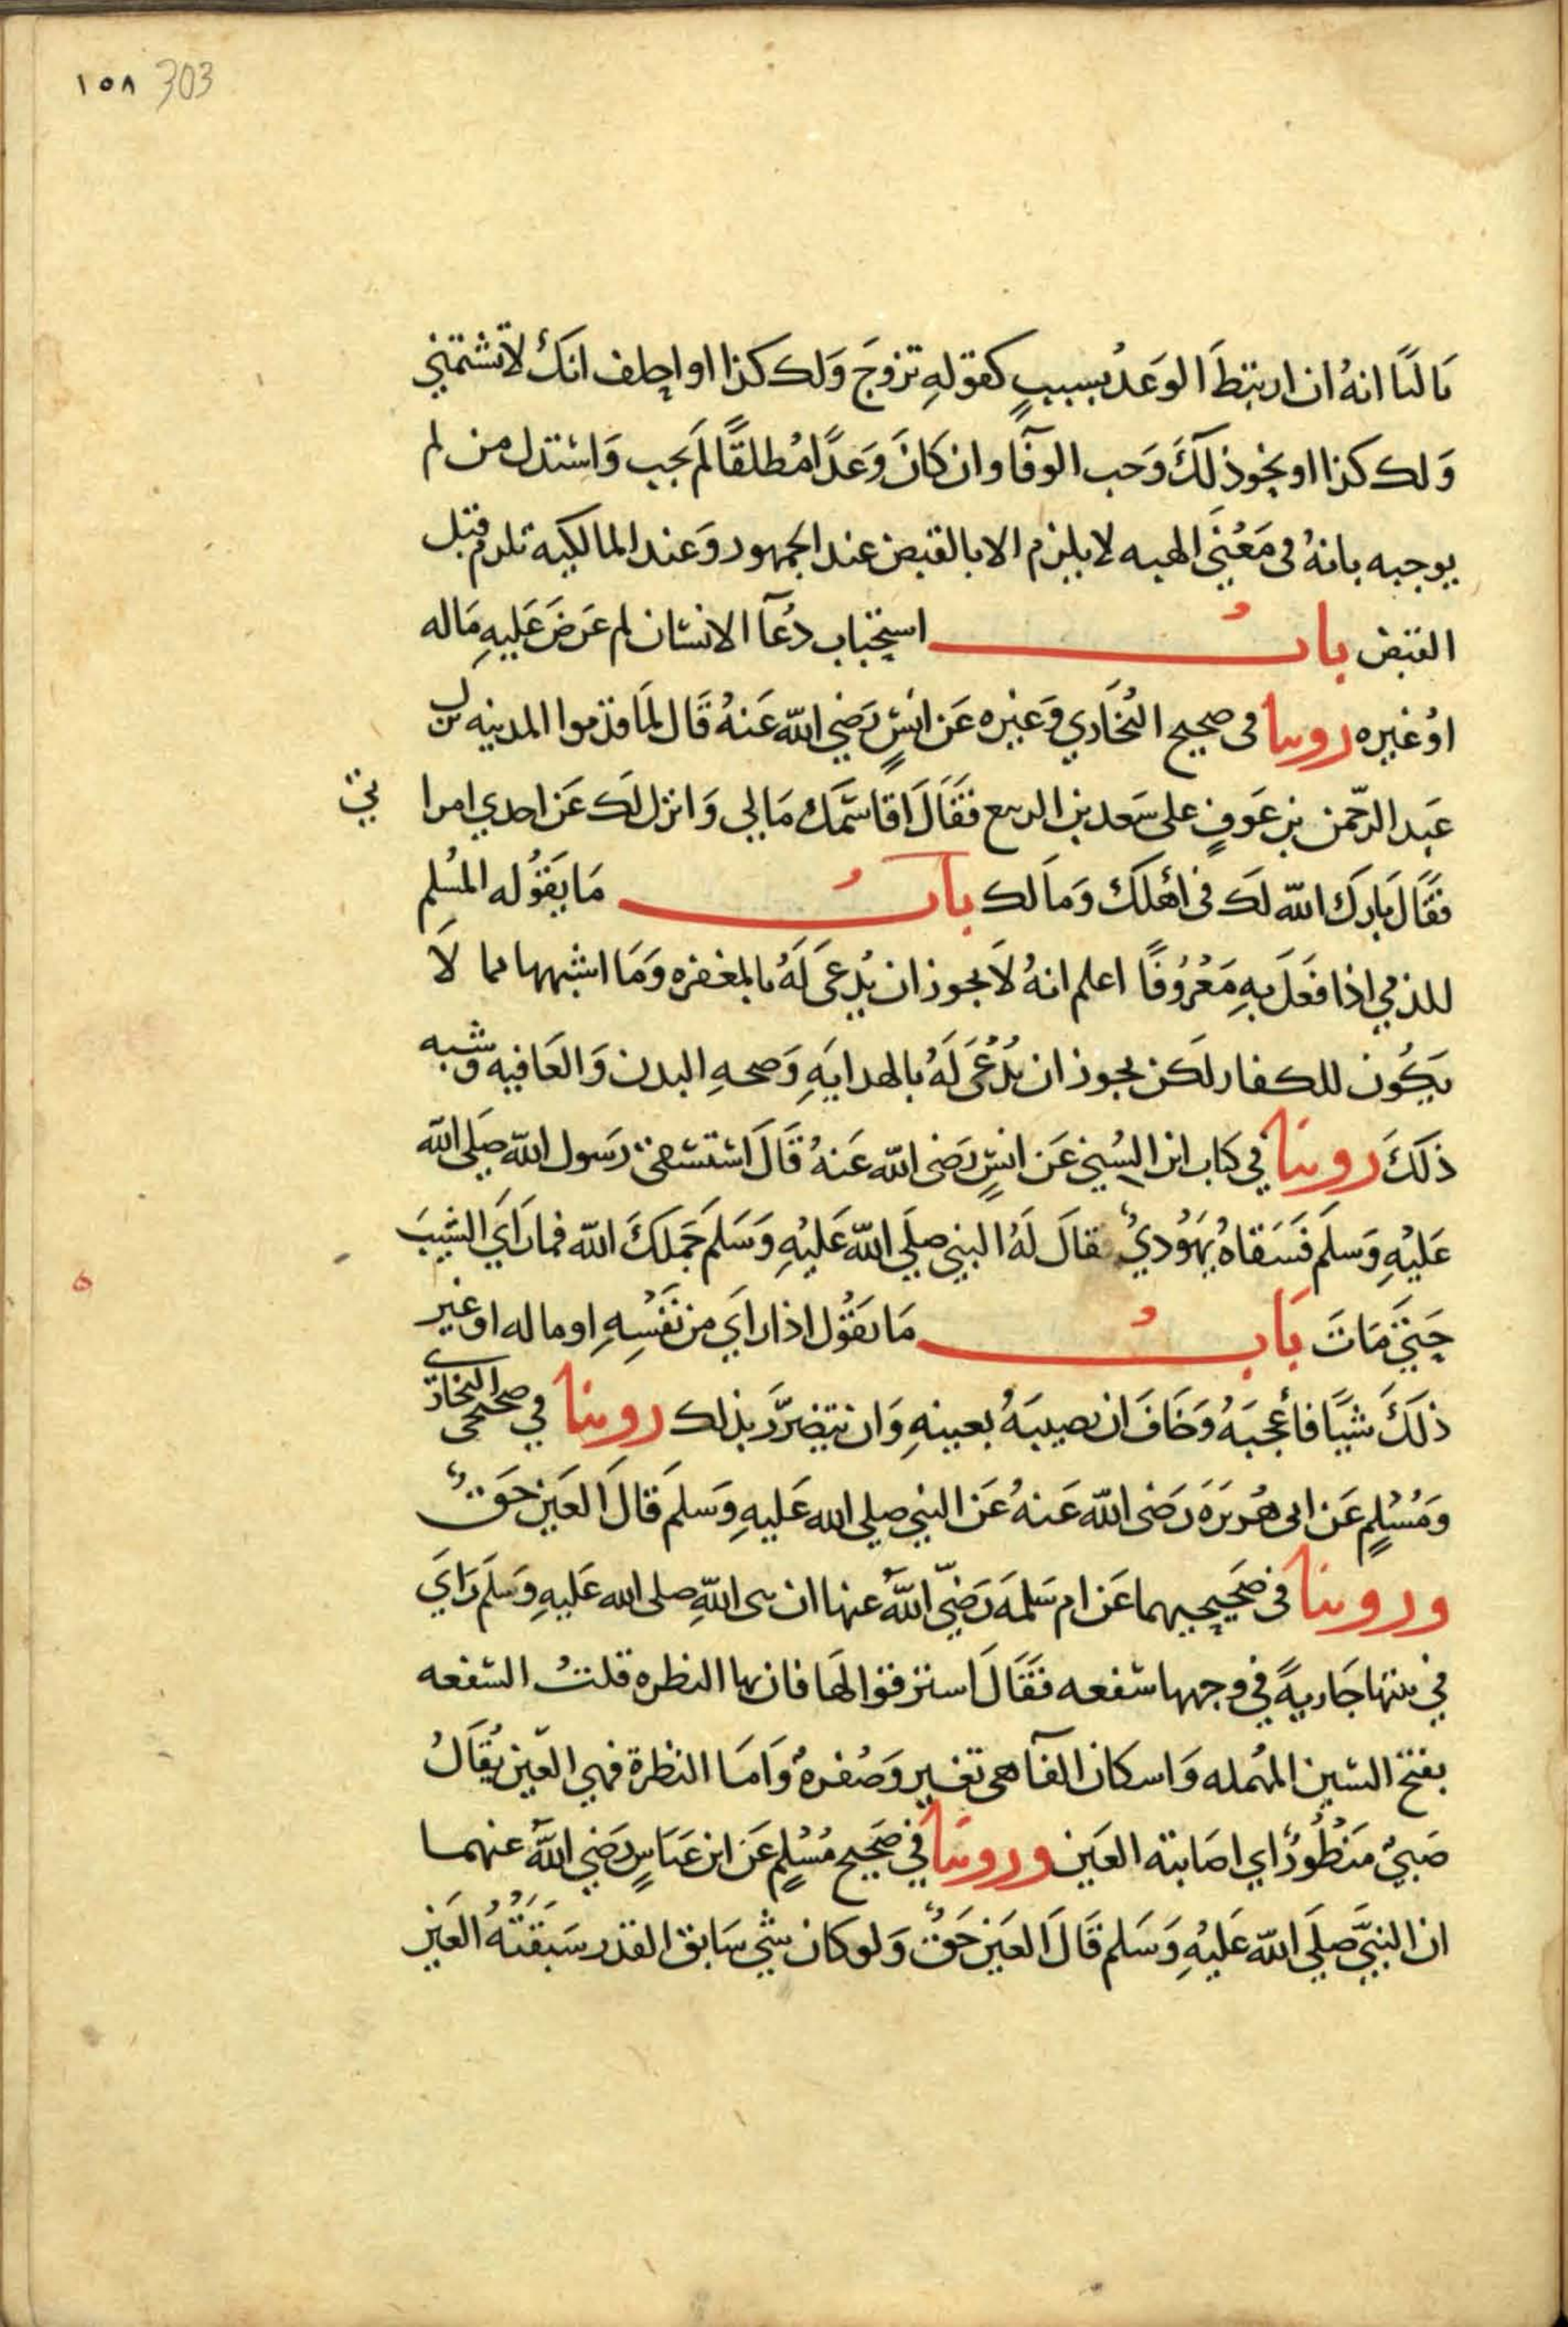 ١٥٨ 303
ثالثا انهُ ان ارتبطَ الوَعدُ بسببٍ كقولهِ تزوجَ وَلك كذا او احلف انكَ لا تشتمني
وَلك كذا او نحو ذلكَ وَجب الوفا وان كانَ وَعدًا مُطلقًا لَم يجب وَاستدل من لم
يوجبه بانهُ فى مَعْنَى الهبه لا يلزم الا بالقبض عند الجمهور وَعند المالكيه تلزم قبل
القبض بابُ استحباب دُعَآ الانسان لم عَرضَ عَليهِ مَاله
اوُ غيره روينا فى صحيح البُخَاري وَغيره عَن انسٍ رَضي الله عَنهُ قَال لمَا قدموا المدينه نزل
عَبد الرّحمن بن عَوفٍ على سَعد بن الربيع فقَالَ اقاسمَك مَالي وَانزل لكَ عَن احدي امرا تي
فقَالَ بَاركَ الله لكَ فى اهْلكَ وَمَالك بابُ مَا يَقُوله المُسلم
للذمي اذا فعَلَ بهِ مَعْرُوفًا اعلم انهُ لَا يجوز ان يُدعَى لَهُ بالمغفره وَمَا اشبهها مما لَا
يَكُون للكفار لكن يجوز ان يُدْعَى لَهُ بالهدايَهِ وَصحهِ البدن وَالعَافيه وشبه
ذلكَ روينَا في كتاب ابن السُني عَن انسٍ رَضى الله عَنهُ قَالَ استسقى رَسول الله صَلى الله
عَليْهِ وَسلم فَسَقاهُ يَهُوديٌ فقالَ لَهُ النبي صلي الله عَليْهِ وَسَلم جَمَلكَ الله فما رَاَي الشيبَ
حَتى مَاتَ بَابُ مَا يقوُل اذا راَي من نَفْسِهِ او ماله او غير
ذلكَ شيًا فأعْجبَهُ وَخَافَ ان يصيبَهُ بعينهِ وَان يتضرَّرَ بذلك روينا في صحيحى البخارى
وَمُسْلمٍ عَن ابى هُريرَهَ رَضى الله عَنهُ عَن النبي صلى الله عَليهِ وَسلمَ قالَ العَين حَقٌ
وروينا فى صَحيحيهما عَن ام سَلمَه رَضيَ الله عنها ان نبى اللهِ صلى الله عَليهِ وَسَلم رَاَي
في بيتها جَاريهً في وجهها سفعه فقَالَ استرقوا لهَا فان بها النظره قلتُ السفعه
بفتح السين المُهمله وَاسكان الفآ هى تغيير وَصُفرهٌ وَامَا النظرة فهي العَين يُقَالُ
صَبيٌ مَنْظُورٌ اي اصَابته العَين وروينَا في صَحيح مُسْلمٍ عَن ابن عَبَاسٍ رَضي الله عنهما
ان النبيَّ صَلَى الله عَليْهِ وَسَلم قَالَ العَين حَقٌ وَلو كان شي سَابق القدر سَبقَتْهُ العَين